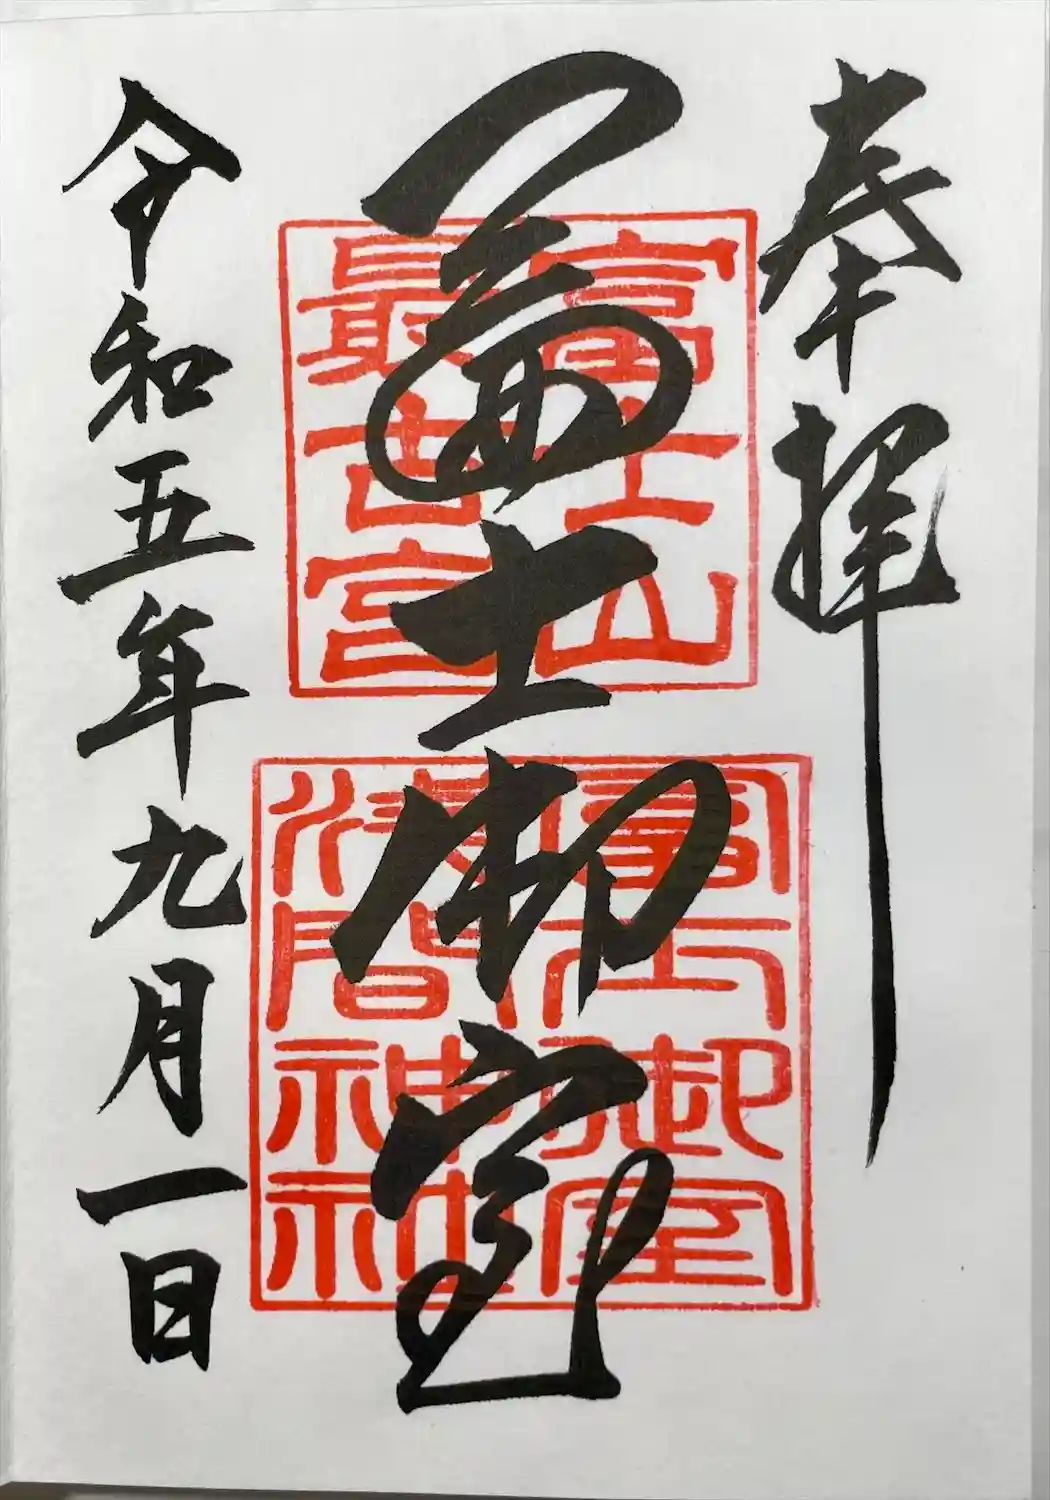 奉拝
富士御室
富士山
最古宮
冨士御室
浅間神社
令和五年九月一日